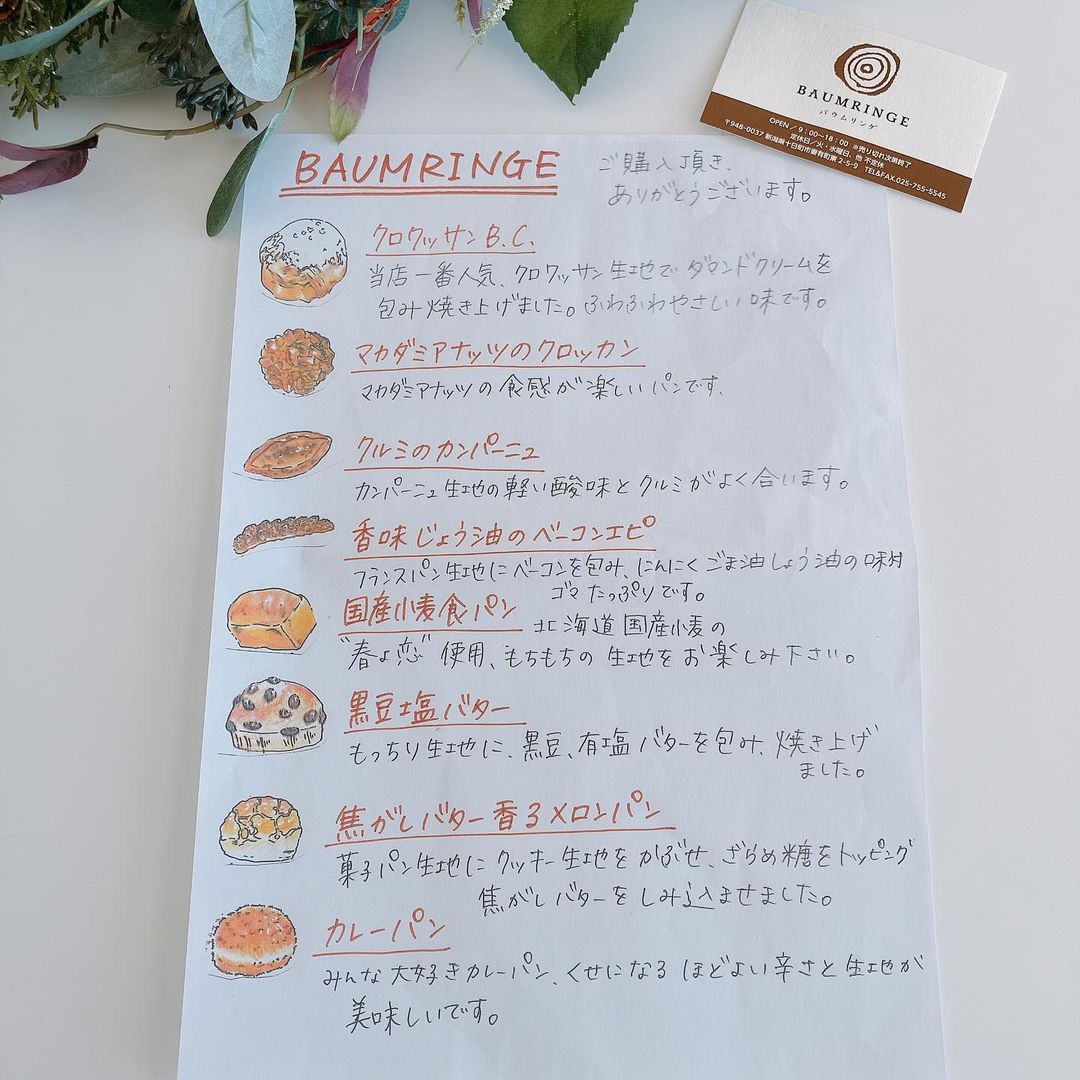 BAUMRINGE
バウムリンゲ
OPEN／9：00—18：00 ※売り切れ次第終了
定休日／火・水曜日、他 不定休
〒948-0037 新潟県十日町市春有町東 2-5-9 TEL&FAX.025-755-5545
BAUMRINGE
ご購入頂き、
ありがとうございます。
クロワッサンB.C.
当店一番人気、クロワッサン生地でダマンドクリームを
包み焼き上げました。ふわふわやさしい味です。
マカダミアナッツのクロッカン
マカダミアナッツの食感が楽しいパンです、
クルミのカンパーニュ
カンパーニュ生地の軽い酸味とクルミがよく合います。
香味じょう油のベーコンエピ
フランスパン生地にベーコンを包み、にんにくごま油しょう油の味付
ゴマたっぷりです。
国産小麦食パン 北海道国産小麦の
"春よ恋"使用、もちもちの生地をお楽しみ下さい。
黒豆塩バター
もっちり生地に、黒豆、有塩バターを包み、焼き上げ
ました。
焦がしバター香るメロンパン
菓子パン生地にクッキー生地をかぶせ、ざらめ糖をトッピング
焦がしバターをしみ込ませました。
カレーパン
みんな大好きカレーパン、くせになるほどよい辛さと生地が
美味しいです。